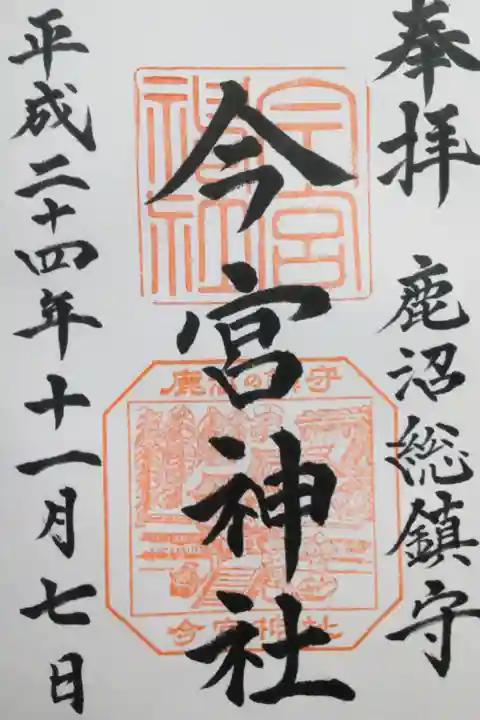 奉拝　鹿沼総鎮守
今宮神社
平成二十四年十一月七日
今宮
神社
鹿沼の鎮守
今宮神社